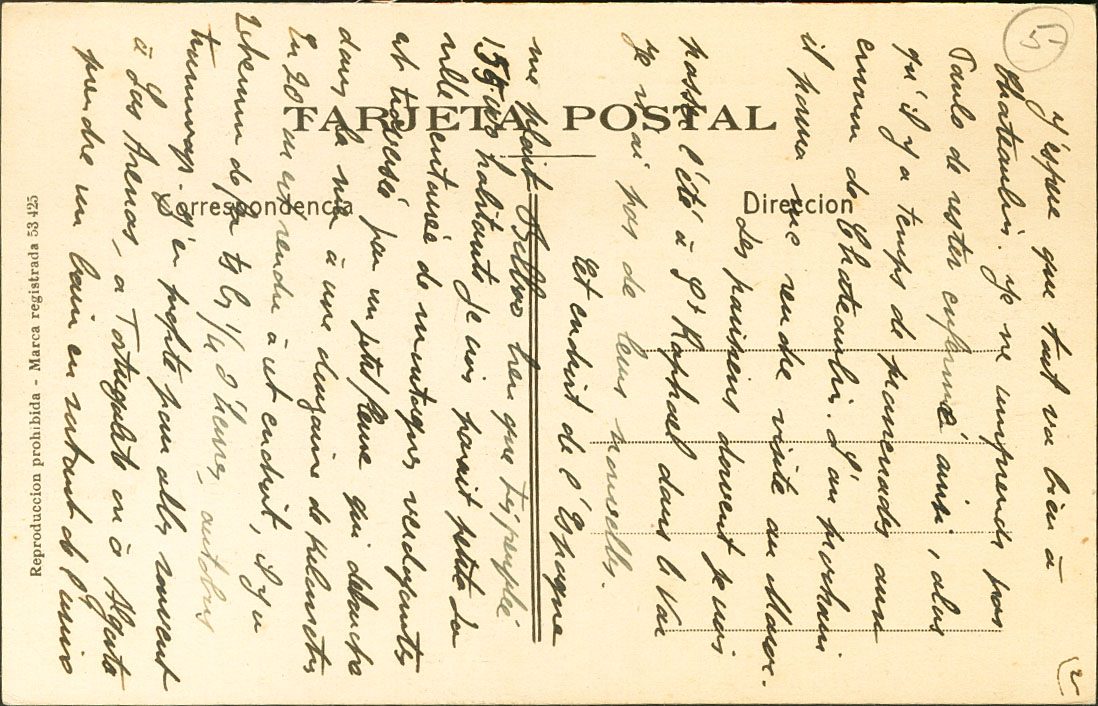 TARJETA POSTAL
Correspondencia
Direccion
Reproduccion prohibida - Marca registrada 53 425
5
(2
J'espère que tout va bien à
Chateaulin. Je ne comprends pas
Paulo de rester enfermé ainsi, alors
qu'il y a temps de promenades aux
environs de Chateaulin. L'an prochain
il pourra me rendre visite au Maroc.
Les parisiens doivent je crois
passer l'été à St Raphael dans le Var
Je n'ai pas de leurs nouvelles.
Cet endroit de l'Espagne
me plait Bilbao bien que très peuplé
habitants je crois parait petite. La
ville entourée de montagnes verdoyantes
est traversée par un petit fleuve qui débouche
dans la mer à une douzaine de kilomètres
En 20 m on est rendu à cet endroit, il y a
chemin de fer ts les 1/4 d'heure, autobus
tramways. J'en profite pour aller souvent
à Las Arenas, a Portugalete ou à Algorta
prendre un bain en sortant de l'usine